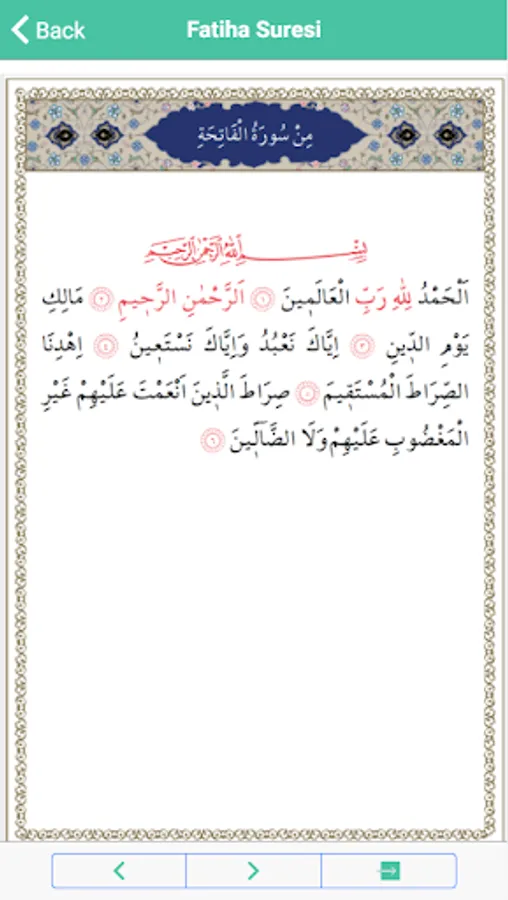 Back
Fatiha Suresi
مِنْ سُورَةُ الْفَاتِحَةِ
بِسْمِ اللّٰهِ الرَّحْمٰنِ الرَّحِيمِ
اَلْحَمْدُ لِلّٰهِ رَبِّ الْعَالَمِينَ ١ اَلرَّحْمٰنِ الرَّحِيمِ ٢ مَالِكِ
يَوْمِ الدِّينِ ٣ اِيَّاكَ نَعْبُدُ وَاِيَّاكَ نَسْتَعِينُ ٤ اِهْدِنَا
الصِّرَاطَ الْمُسْتَقِيمَ ٥ صِرَاطَ الَّذِينَ اَنْعَمْتَ عَلَيْهِمْ غَيْرِ
الْمَغْضُوبِ عَلَيْهِمْ وَلَا الضَّٓالِّينَ ٦